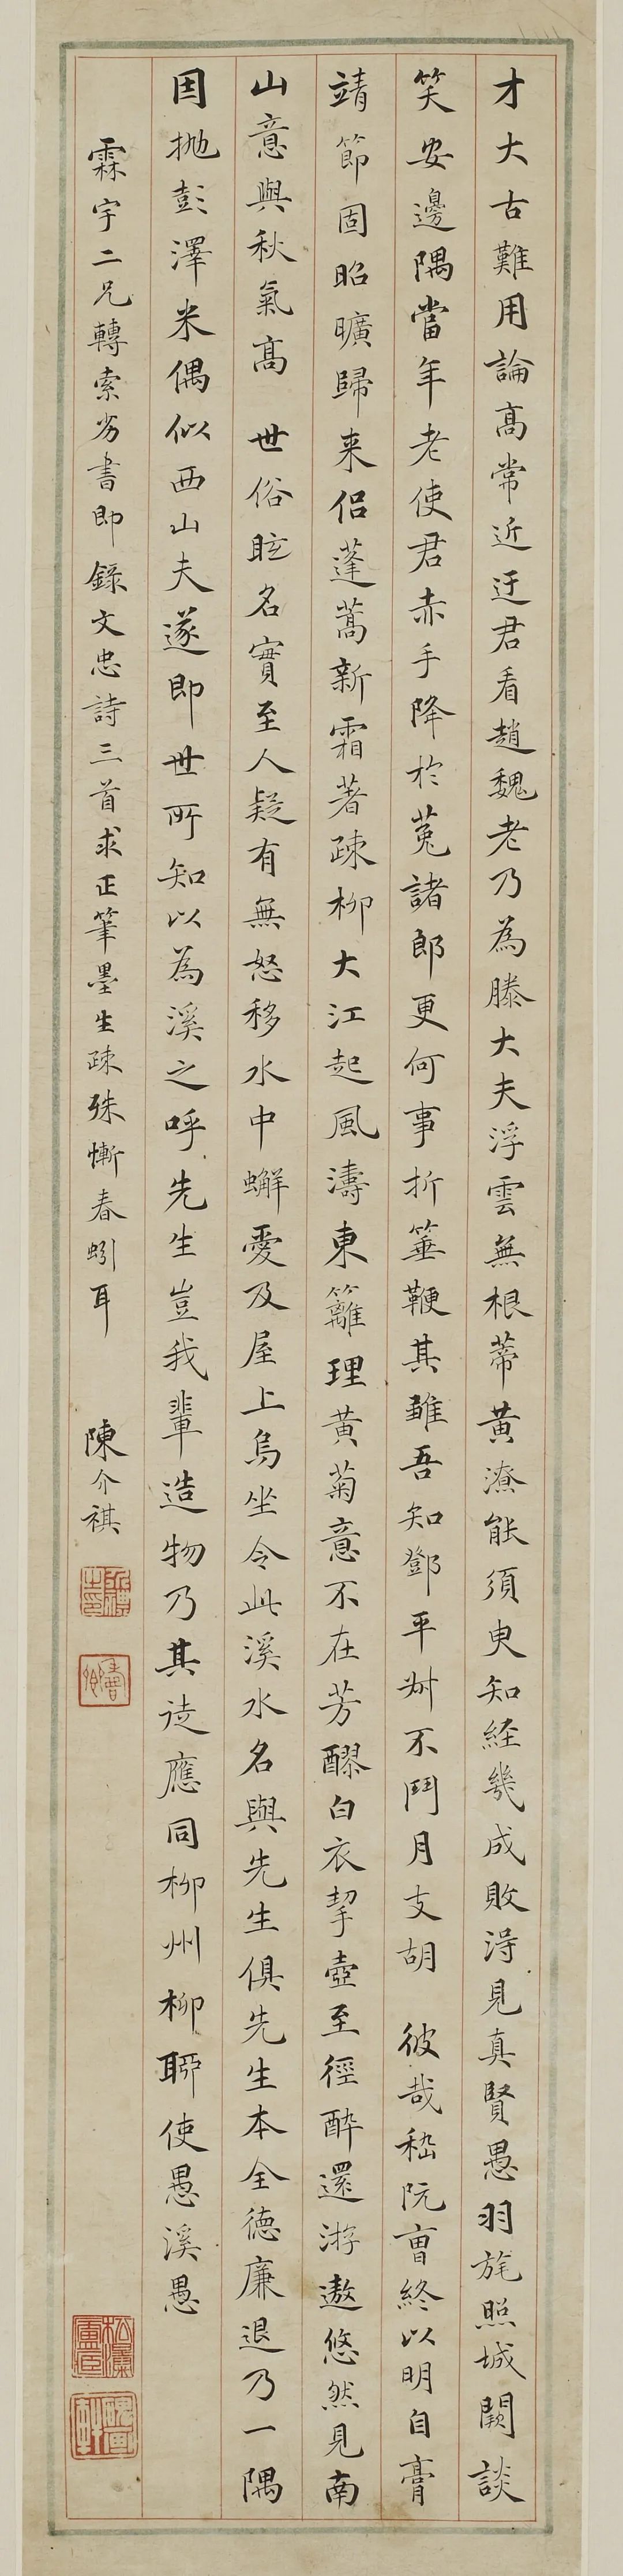 才大古難用論高常近迂君看趙魏老乃為滕大夫浮雲無根蒂黃潦能須臾知經幾成敗得見真賢愚羽旄照城闕談
笑安邊隅當年老使君赤手降於菟諸郎更何事折箠鞭其雛吾知鄧平州不鬥月支胡　彼哉嵇阮曹終以明自膏
靖節固昭曠歸来侶蓬蒿新霜著疎柳大江起風濤東籬理黃菊意不在芳醪白衣挈壺至徑醉還游遨悠然見南
山意與秋氣高　世俗眩名實至人疑有無怒移水中蠏愛及屋上烏坐令此溪水名與先生俱先生本全德廉退乃一隅
因抛彭澤米偶似西山夫遂即世所知以為溪之呼先生豈我輩造物乃其徒應同柳州柳聊使愚溪愚
霖宇二兄轉索劣書即錄文忠詩三首求正筆墨生疎殊慚春蚓耳　陳介祺